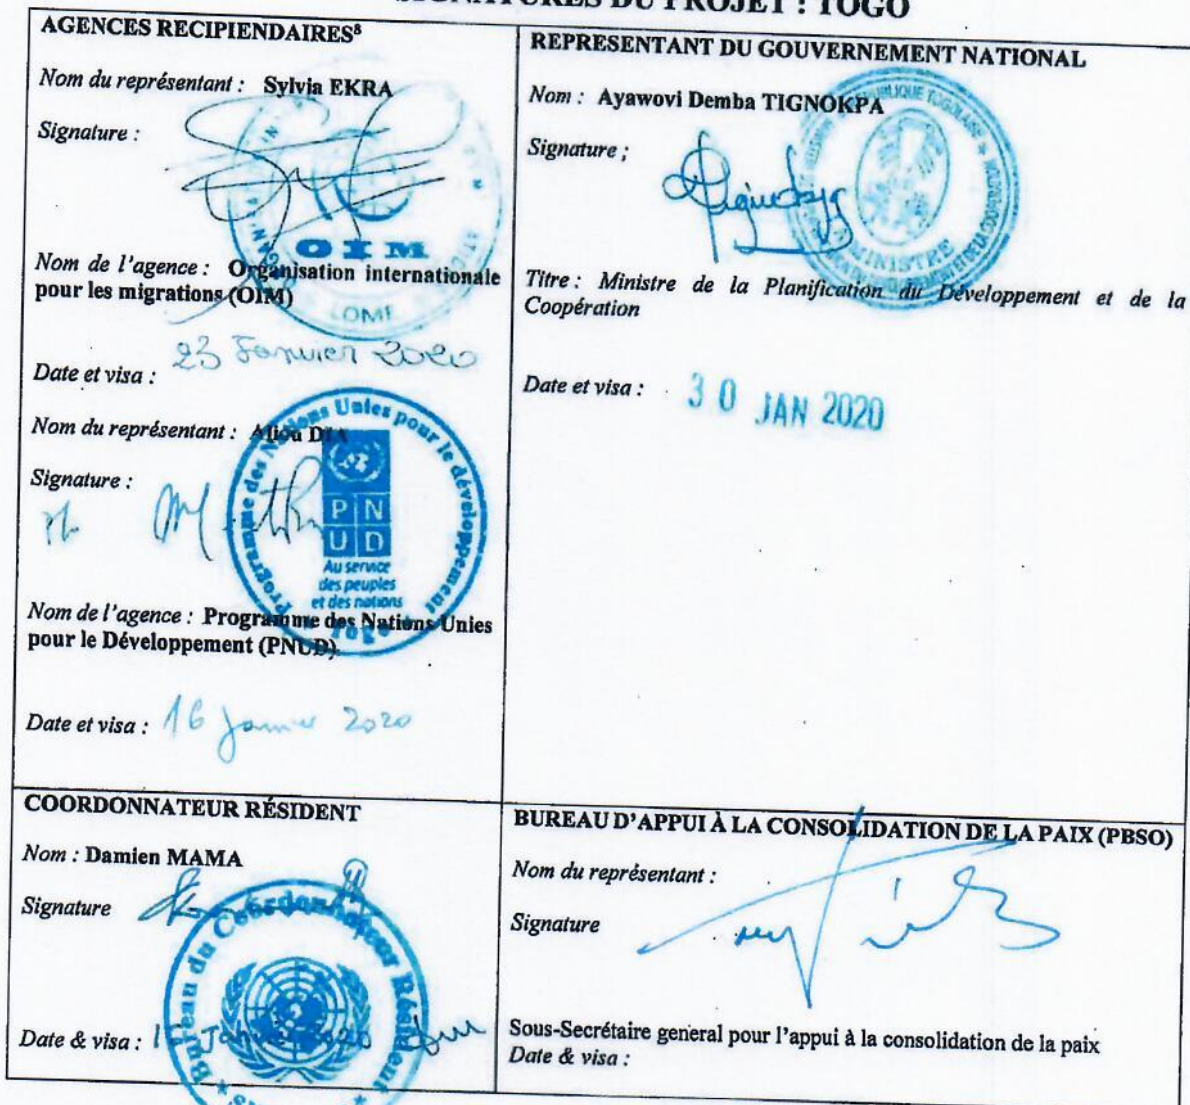 SIGNATURES DU PROJET : TOGO
AGENCES RECIPIENDAIRES⁸
Nom du représentant : Sylvia EKRA
Signature :
OIM
LOME
Nom de l'agence : Organisation internationale
pour les migrations (OIM)
23 Janvier 2020
Date et visa :
Nom du représentant : Aliou DIA
Signature :
Programme des Nations Unies pour le développement
Togo
PNUD
Au service
des peuples
et des nations
Nom de l'agence : Programme des Nations Unies
pour le Développement (PNUD)
Date et visa : 16 Janvier 2020
REPRESENTANT DU GOUVERNEMENT NATIONAL
Nom : Ayawovi Demba TIGNOKPA
Signature ;
REPUBLIQUE TOGOLAISE
MINISTRE
Titre : Ministre de la Planification du Développement et de la
Coopération
Date et visa : 30 JAN 2020
COORDONNATEUR RÉSIDENT
Nom : Damien MAMA
Signature
Bureau du Coordonnateur Résident
Date & visa : Janvier 2020
BUREAU D'APPUI À LA CONSOLIDATION DE LA PAIX (PBSO)
Nom du représentant :
Signature
Sous-Secrétaire general pour l'appui à la consolidation de la paix
Date & visa :